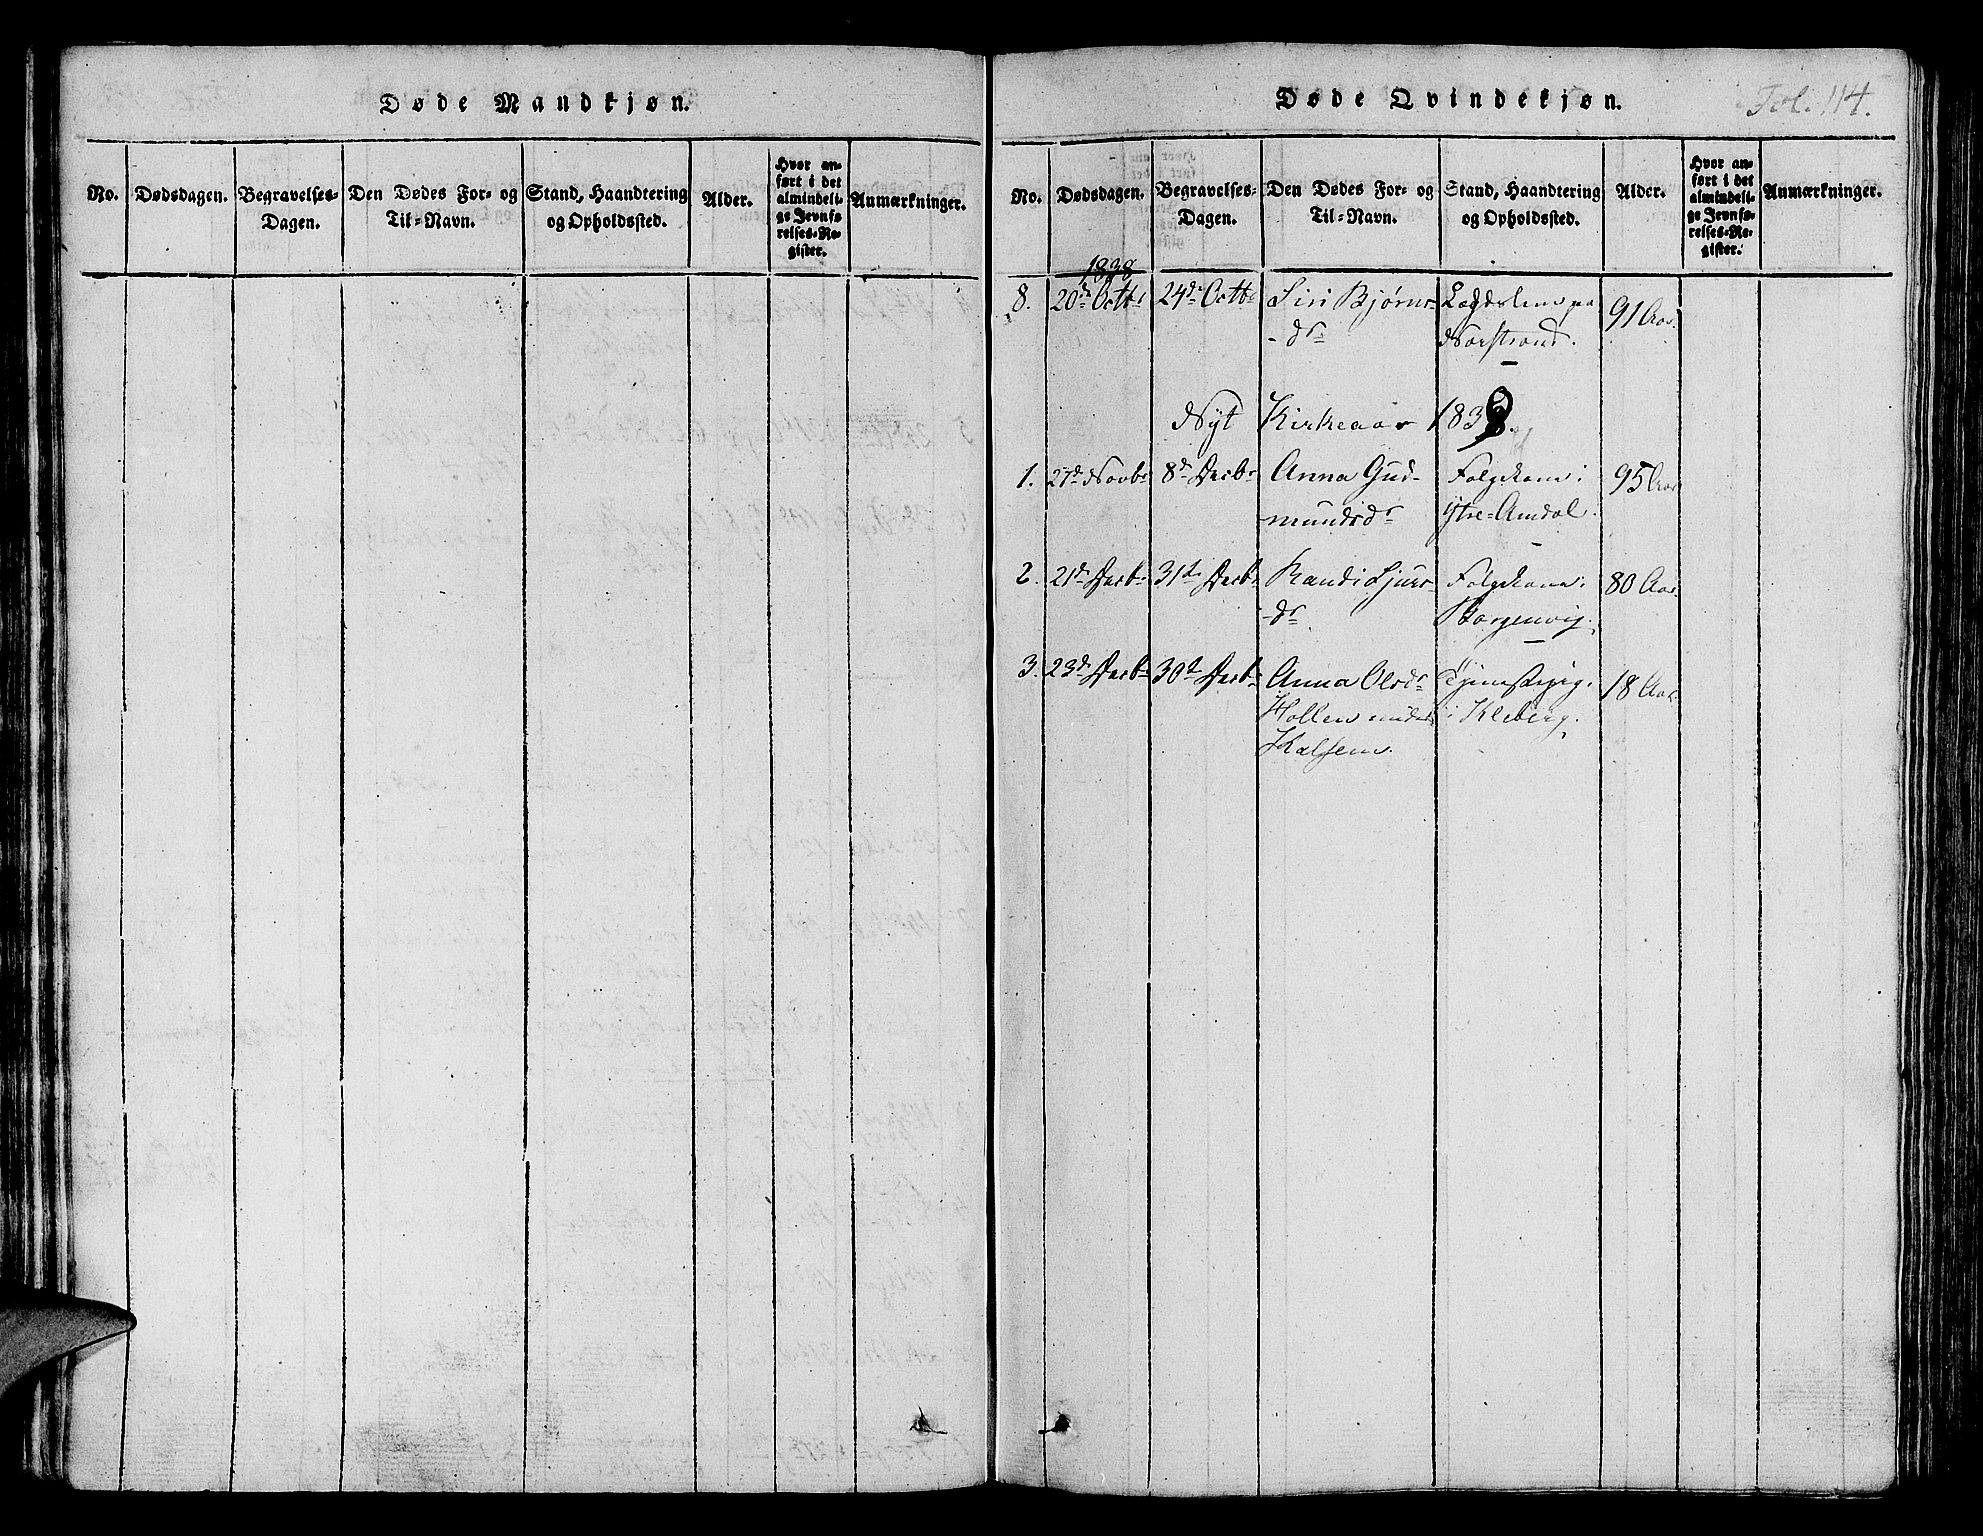 Døde Mandkjøn.
No. Dødsdagen. Begravelses-Dagen. Den Dødes For- og Til-Navn. Stand, Haandtering og Opholdssted. Alder. Hvor anført i det almindelige Jevnførelses-Register. Anmærkninger.
Døde Qvindekjøn. Fol. 114.
No. Dødsdagen. Begravelses-Dagen. Den Dødes For- og Til-Navn. Stand, Haandtering og Opholdssted. Alder. Hvor anført i det almindelige Jevnførelses-Register. Anmærkninger.
1838
8. 20de Octbr 24de Octbr Siri Bjørns- Lægdslem paa 91 Aar.
-dr Norstrand.
Nyt Kirkeaar 1839.
1. 27de Novbr 8de Decbr Anna Gud- Følgekone i 95 Aar
-mundsdr Ytre-Amdal.
2. 21de Decbr 31te Decbr Randi Sjurs- Følgekone i 80 Aar.
-dr Borgenvig.
3. 23de Decbr 30te Decbr Anna Olsdr Tjenestepig. 18 Aar.
Hollen under i Kleberg.